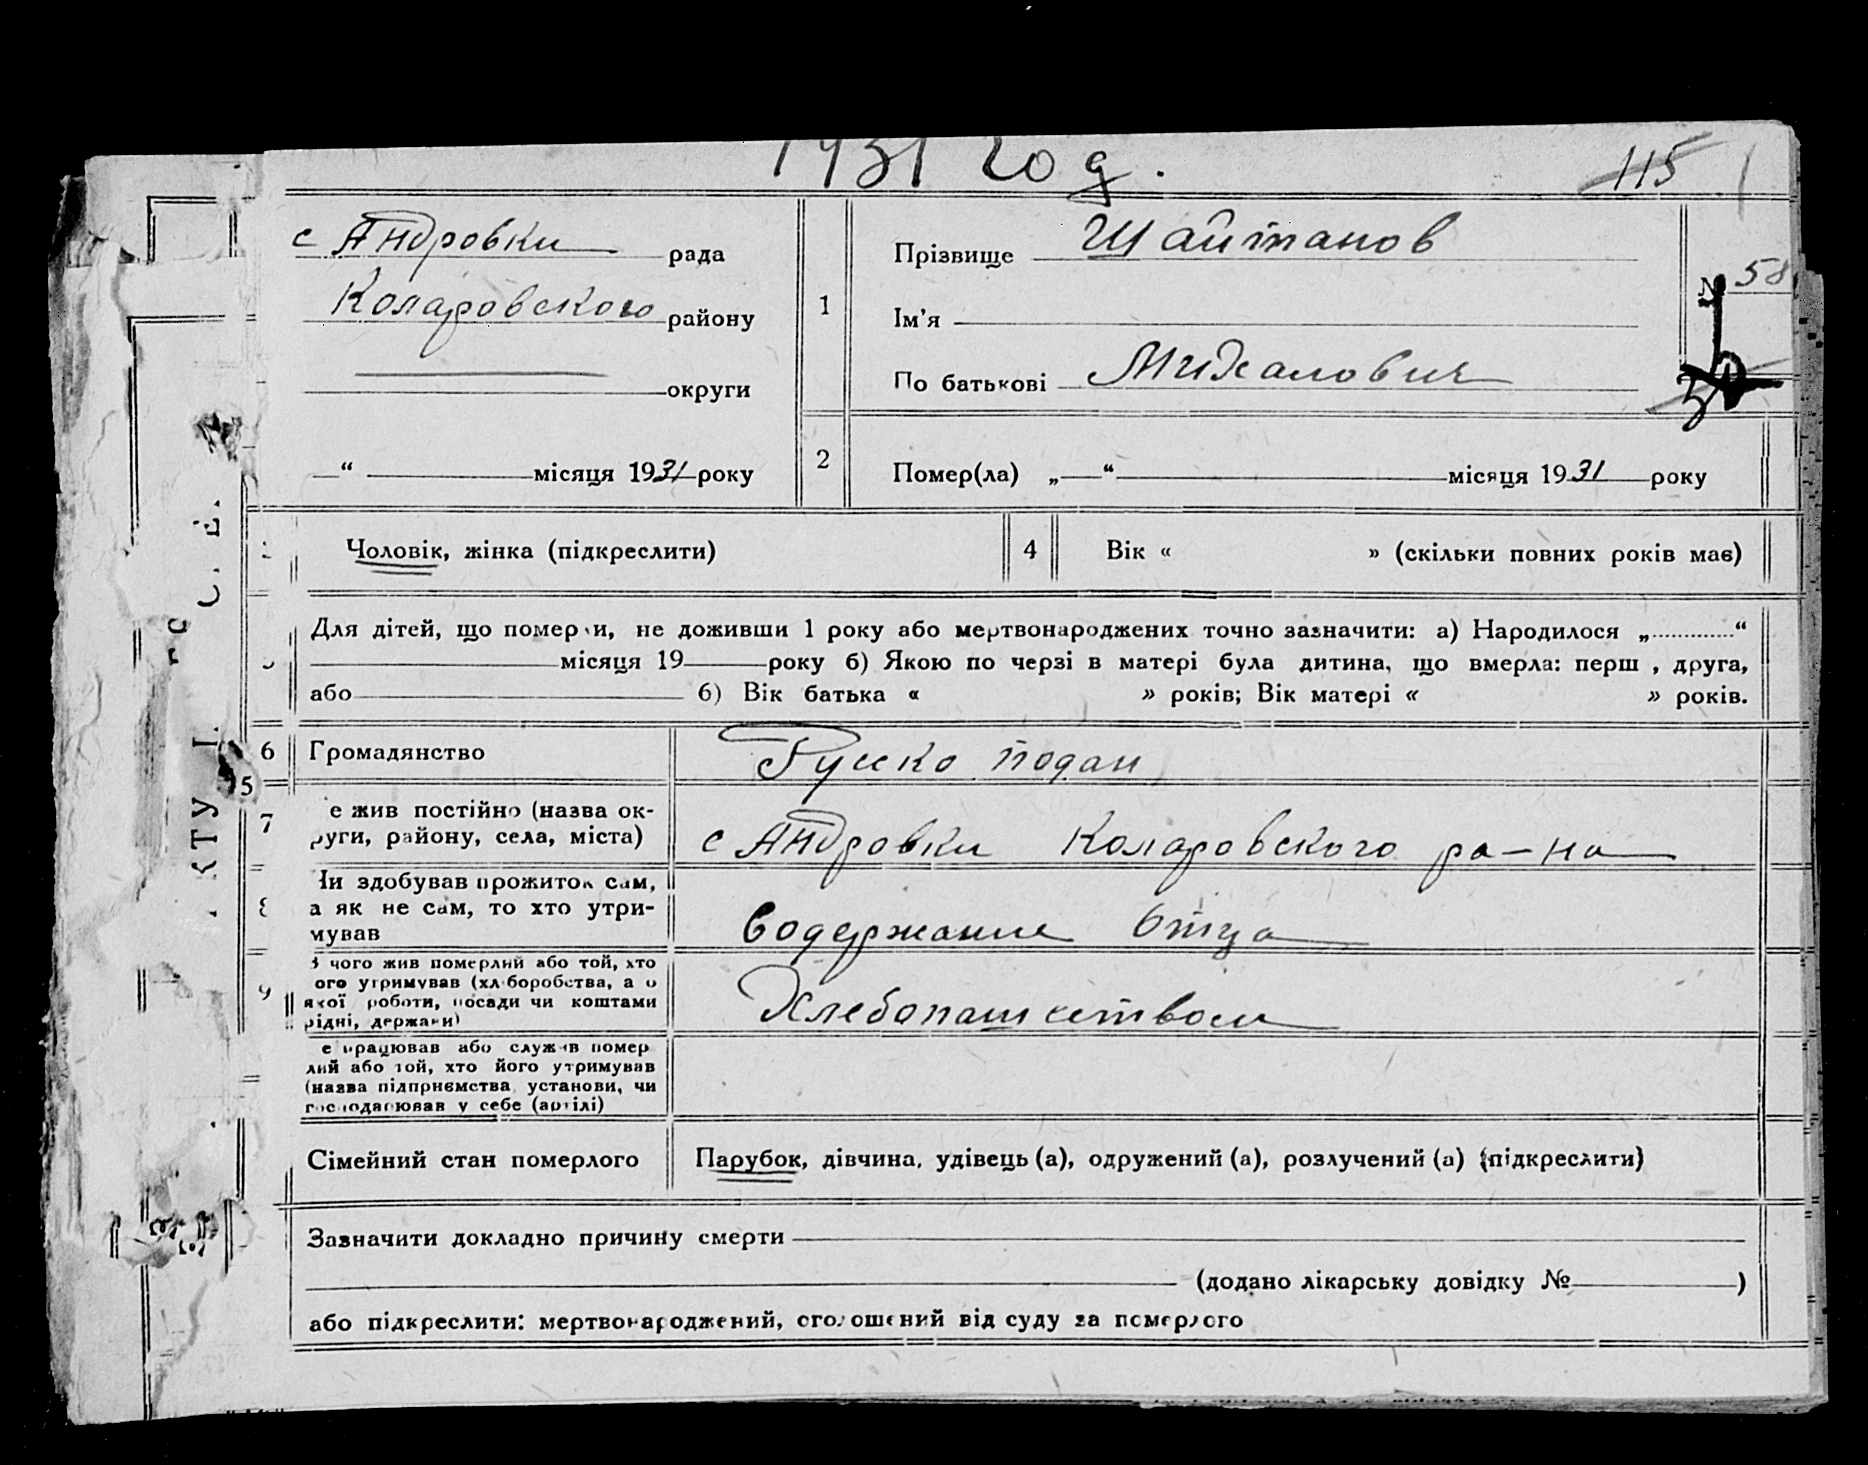 1931 год.
115
с Андровки рада
Коларовского району
округи
“ місяця 1931 року
1
Прізвище Шайтанов
Ім’я
По батькові Михалович
№ 58
2
Помер(ла) „ “ місяця 1931 року
Чоловік, жінка (підкреслити)
4
Вік « » (скільки повних років має)
Для дітей, що померли, не доживши 1 року або мертвонароджених точно зазначити: а) Народилося „ “
місяця 19 року б) Якою по черзі в матері була дитина, що вмерла: перш , друга,
або б) Вік батька « » років; Вік матері « » років.
6 Громадянство Русско подан
5
7 е жив постійно (назва ок-
руги, району, села, міста) с Андровки Коларовского ра-на
8 Чи здобував прожиток сам,
а як не сам, то хто утри-
мував содержание Отца
9 З чого жив померлий або той, хто
ого утримував (хліборобства, а о
якої роботи, посади чи коштами
рідні, держави) Хлебопашеством
е працював або служив помер
лий або той, хто його утримував
(назва підприємства, установи, чи
господарював у себе (артілі)
Сімейний стан померлого Парубок, дівчина, удівець (а), одружений (а), розлучений (а) (підкреслити)
Зазначити докладно причину смерти
(додано лікарську довідку № )
або підкреслити: мертвонароджений, оголошений від суду за померлого